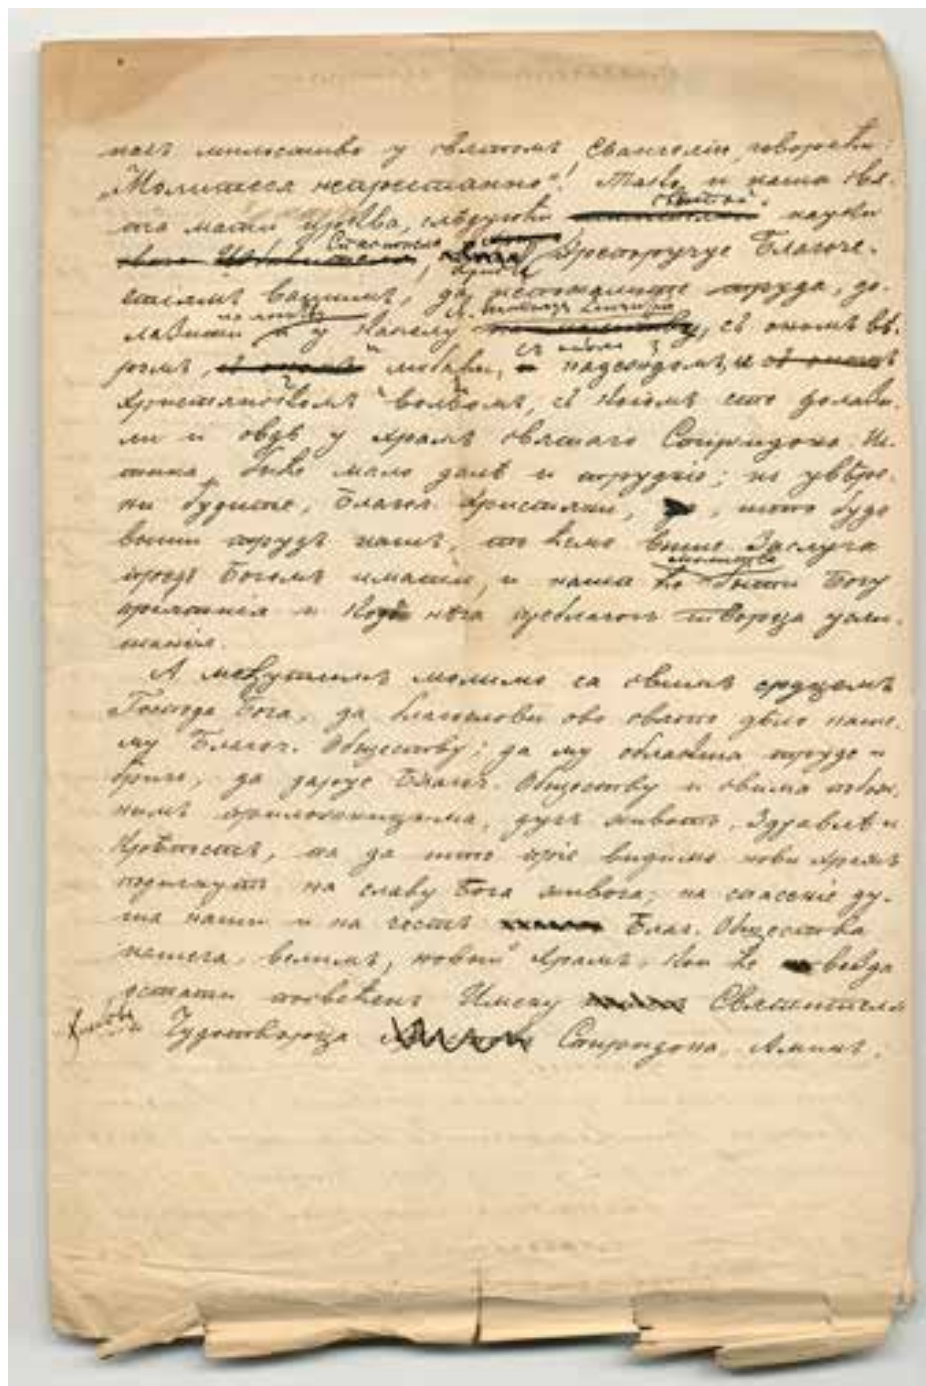 насъ милостиво у святомъ Евангелію говорећи:
„Молитеся непрестанно“! Тако и наша свя-
та мати црква, слѣдуюћи святой науки
Спасителя, препоручуе Благоче-
стіямъ вашимъ, да непожалите труда, до-
лазити у Капелу, съ ономъ вѣ-
ромъ, любави, надеждомъ, и
христіянскомъ волѣомъ, съ коіомъ сте долази-
ли и овдѣ у храмъ святаго Спиридона. И-
стина, биће мало далѣ и труднiе; но увѣре-
ни будите, Благоч. Христіяни, што буде
већи трудъ нашъ, то ћемо више заслуга
предъ Богомъ имати, и наша молитва ће бити Богу
пріятнія и кодъ нѣга преблагогъ творца услы-
шанія.
А међутимъ молимо са свимъ срдцемъ
Господа Бога, да благослови ово свято дѣло наше-
му Благоч. Обществу; да му облакша труде и
бриге, да дарує Благоч. Обществу и свима побож-
нимъ приложницима, дугъ животъ, здравлѣ и
крѣпость, па да што пріе видимо нови храмъ
подигнутъ на славу Бога живога; на спасеніе ду-
ша наши и на честь Благ. Общества
нашега, велимъ, новый храмъ, кои ће вейда
остати посвећенъ Имену Святителя
и Чудотворца Спиридона. Аминъ.